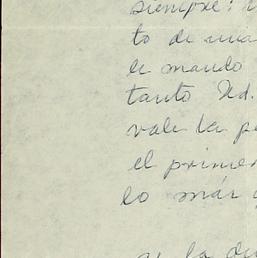 siempre:
to de una
le mando
tanto Ud.
vale la pe
el primer
lo más
y la du